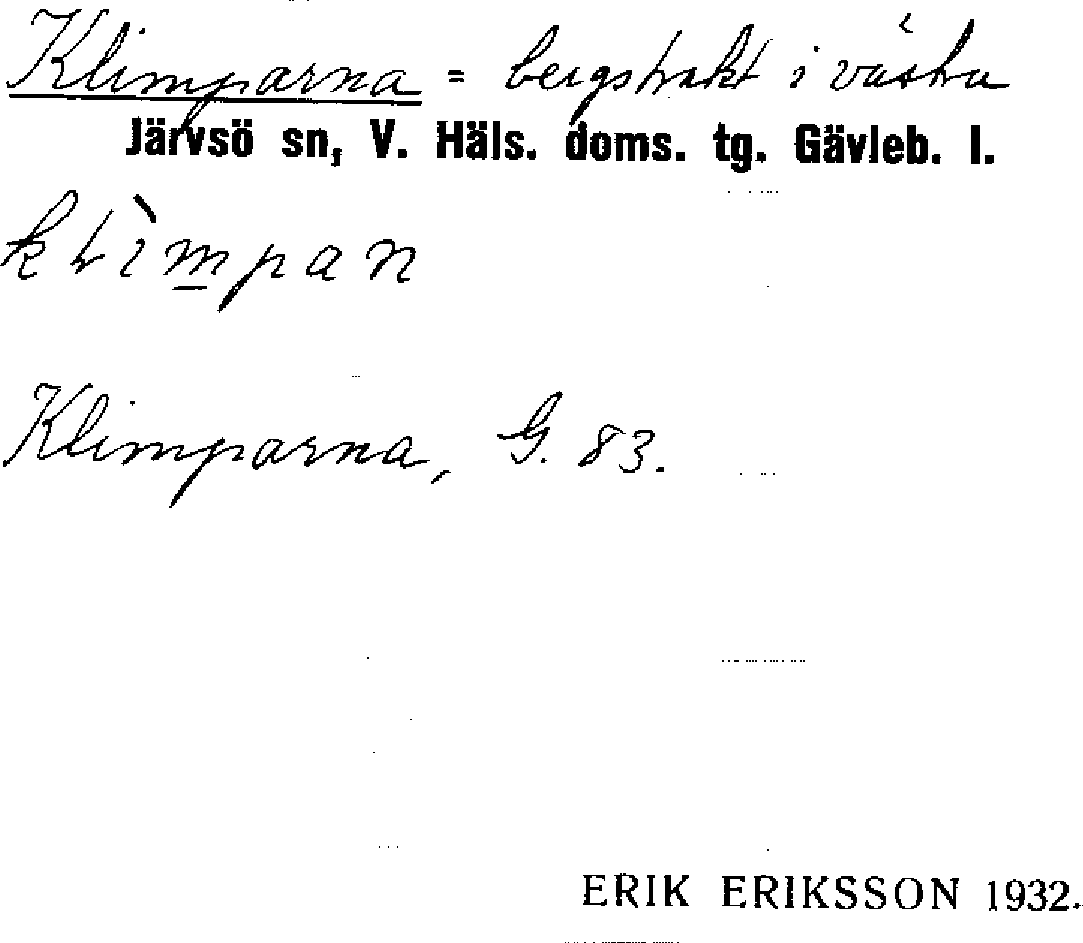 Klimparna = bergstrakt i västra
Järvsö sn, V. Häls. doms. tg. Gävleb. l.
Klimparna, G. 83.
ERIK ERIKSSON 1932.